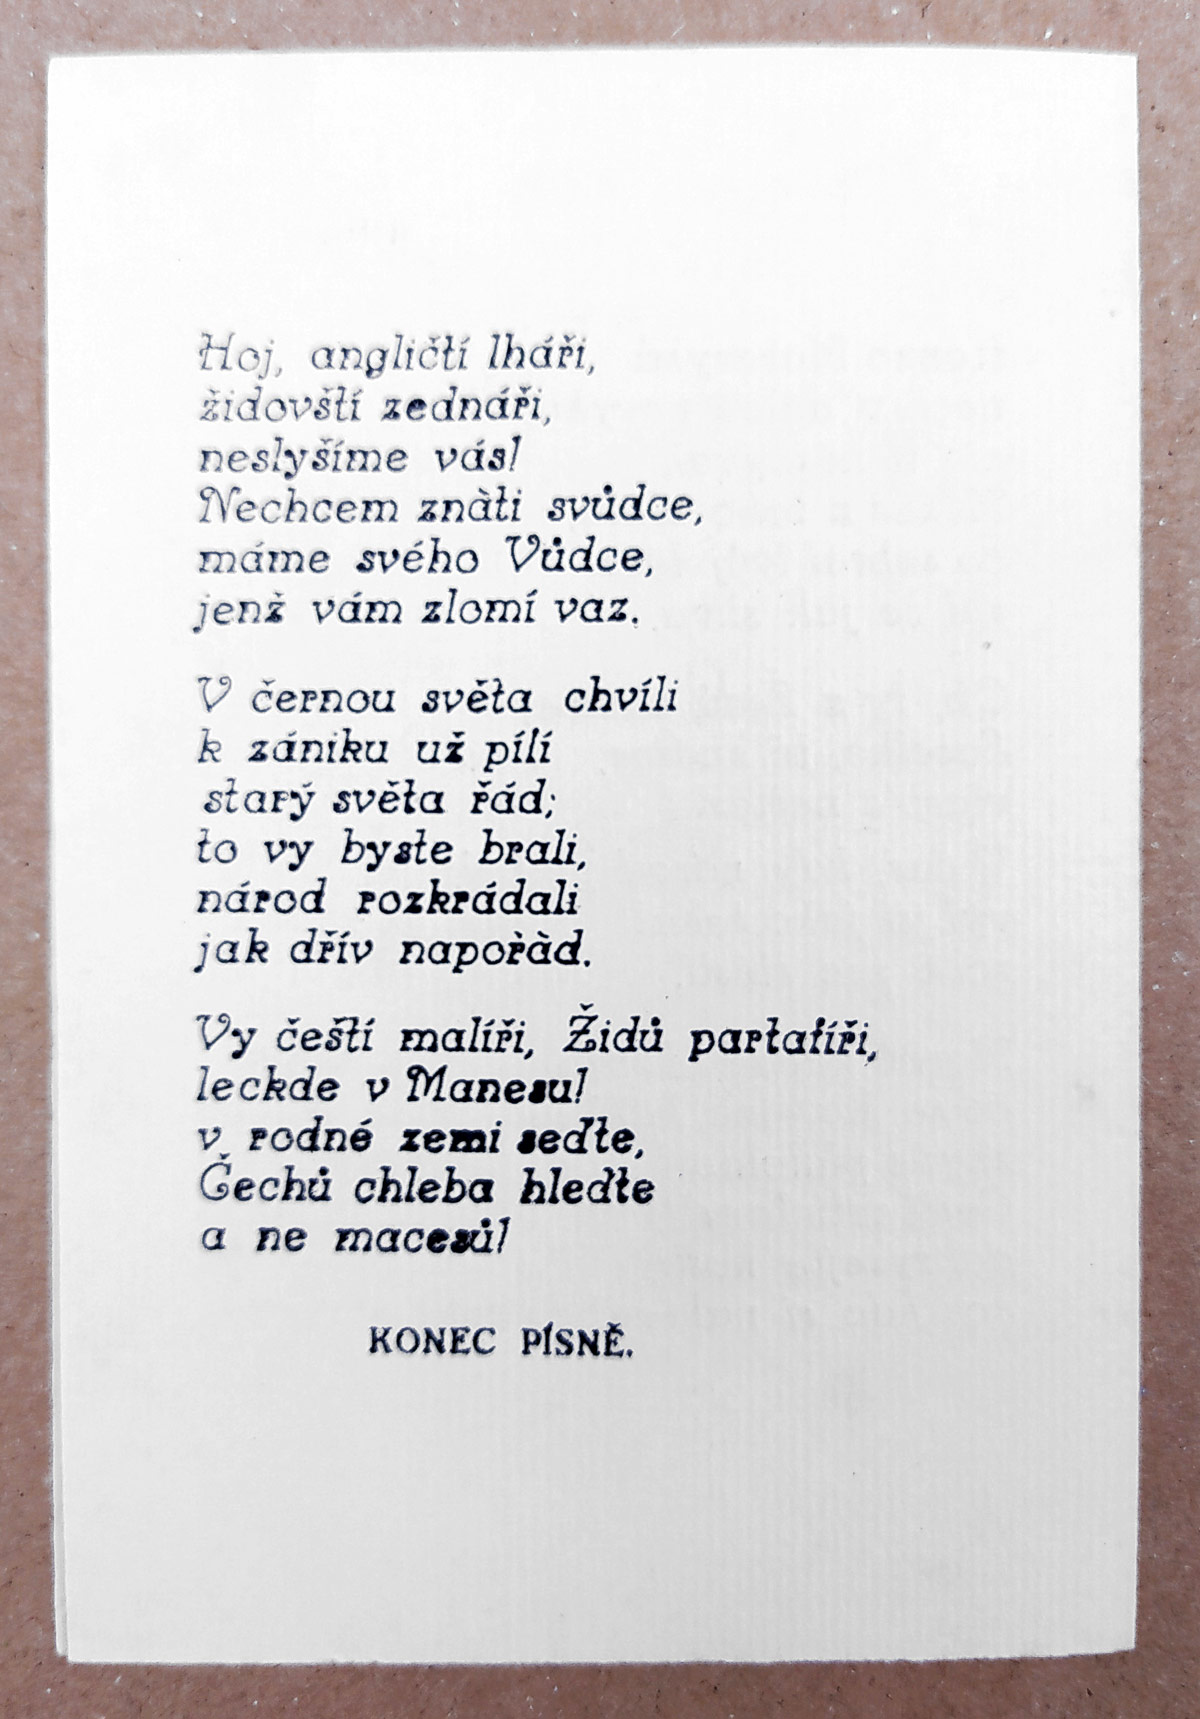 Hoj, angličtí lháři,
židovští zednáři,
neslyšíme vás!
Nechcem znàti svůdce,
máme svého Vůdce,
jenž vám zlomí vaz.
V černou světa chvíli
k zániku už pílí
starý světa řád;
to vy byste brali,
národ rozkrádali
jak dřív napořàd.
Vy čeští malíři, Židů partafíři,
leckde v Manesu!
v rodné zemi seďte,
Čechů chleba hleďte
a ne macesů!
KONEC PÍSNĚ.